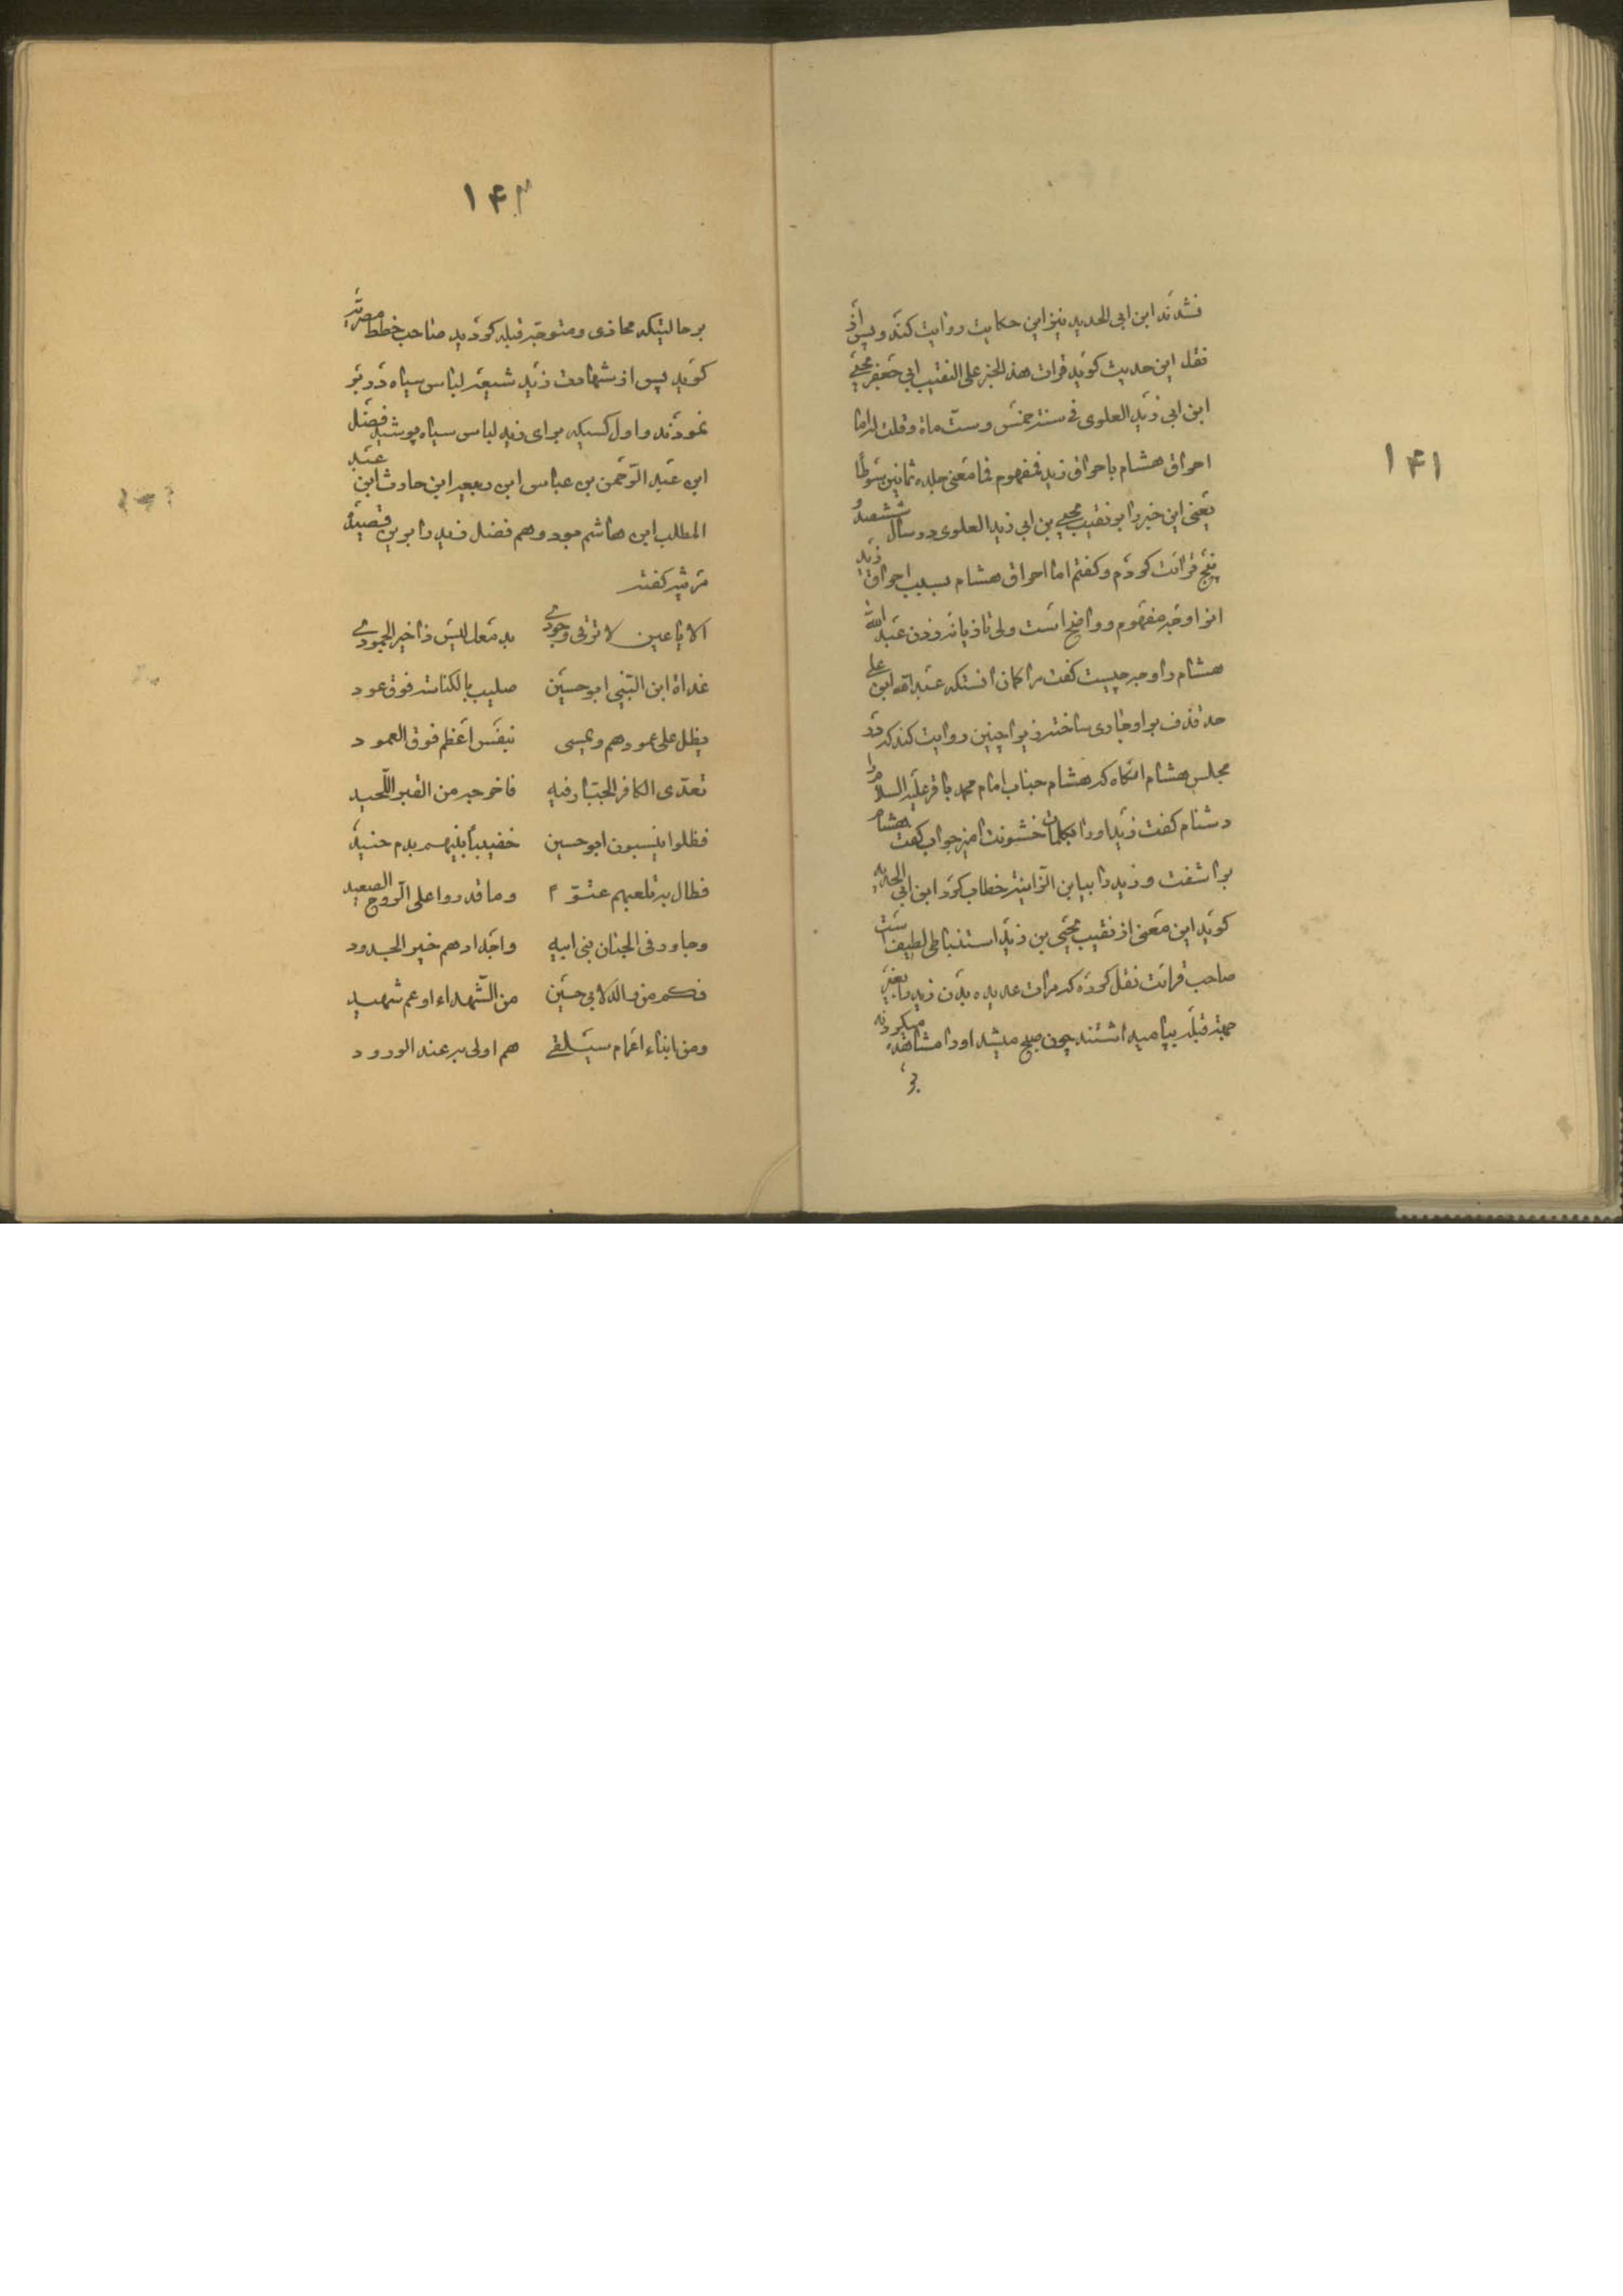 ۱۴۱
نشدند ابن ابی الحدید نیز این حکایت روایت کند و پس از
نقل این حدیث کوید قرات هذ الخبر علی النقیب ابی جعفر یحیی
ابن ابی زید العلوی فی سنة خمس و ست ماة و قلت له اما
احراق هشام باحراق زید فمفهوم فما معنی جلده ثمانین سوطاً
یعنی این خبر را بر نقیب یحیی بن ابی زید العلوی در سال ششصد و
پنج قرائت کردم و کفتم اما احراق هشام بسبب احراق زید
از او خبر مفهوم و واضح است ولی تازیانه زدن عبد الله
هشام را وجه چیست کفت مرا کمان انستکه عبد الله ابن علی
حد قذف بر او جاری ساخته زیرا چنین روایت کند که در
مجلس هشام انکاه که هشام جناب امام محمد باقر علیه السلام را
دشنام کفت زید او را بکلمات خشونت امیز جواب کفت هشام
بر اشفت و زید را بیا بن الزانیة خطاب کرد ابن ابی الحدید
کوید این معنی از نقیب یحیی بن زید استنباطی لطیف است
صاحب قرائت نقل کرده که مرات عدیده بدن زید را بغیر
جهة قبله بپا میداشتند چون صبح میشد او را مشاهده میکردند
بر
۱۴۲
بر حالتیکه محاذی و متوجه قبله کردید صاحب خطط مصریه
کوید پس از شهادت زید شیعه لباس سیاه در بر
نمودند و اول کسیکه برای زید لباس سیاه پوشید فضل
ابن عبد الرحمن بن عباس ابن ربیعه ابن حارث ابن عبد
المطلب ابن هاشم بود و هم فضل زید را بر این قصیده
مرثیه کفته
الا یا عین لا ترقی وجودی بدمعک لیس ذا خیر الجمودی
غداة ابن النبی ابو حسین صلیب بالکناسة فوق عود
یظل علی عمودهم و یمسی بنفس اعظم فوق العمود
تعدی الکافر الجبار فیه فاخرجه من القبر اللحید
فظلوا ینسبون ابو حسین خضیباً بینهم بدم جسید
فطال به تلعبهم عتوّا و ما قدروا علی الروح الصعید
و جاور فی الجنان بنی ابیه و اجدادهم خیر الجدود
فکم من والد لابی حسین من الشهداء او عم شهید
و من ابناء اعمام سیلقی هم اولی به عند الورود